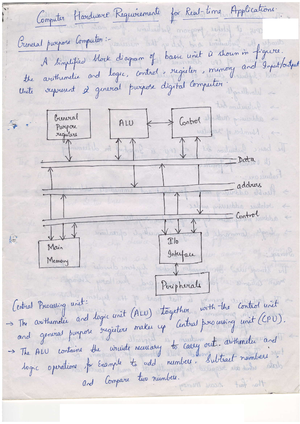 Computer Hardware Requirements for Real-time Applications.
General purpose Computer :-
A Simplified block diagram of basic unit is shown in figure.
the arithmetic and logic, control, register, memory and Input/output
Units represent a general purpose digital Computer
General
Purpose
registers
ALU
Control
Data
address
Control
Main
Memory
I/O
Interface
Peripherals
Central Processing unit:
→ The arithmetic and logic unit (ALU) together with the Control unit
and general purpose registers make up Central processing unit (CPU).
→ The ALU contains the circuits necessary to carry out arithmetic and
logic operations for Example to add numbers. Subtract numbers
and Compare two numbers.